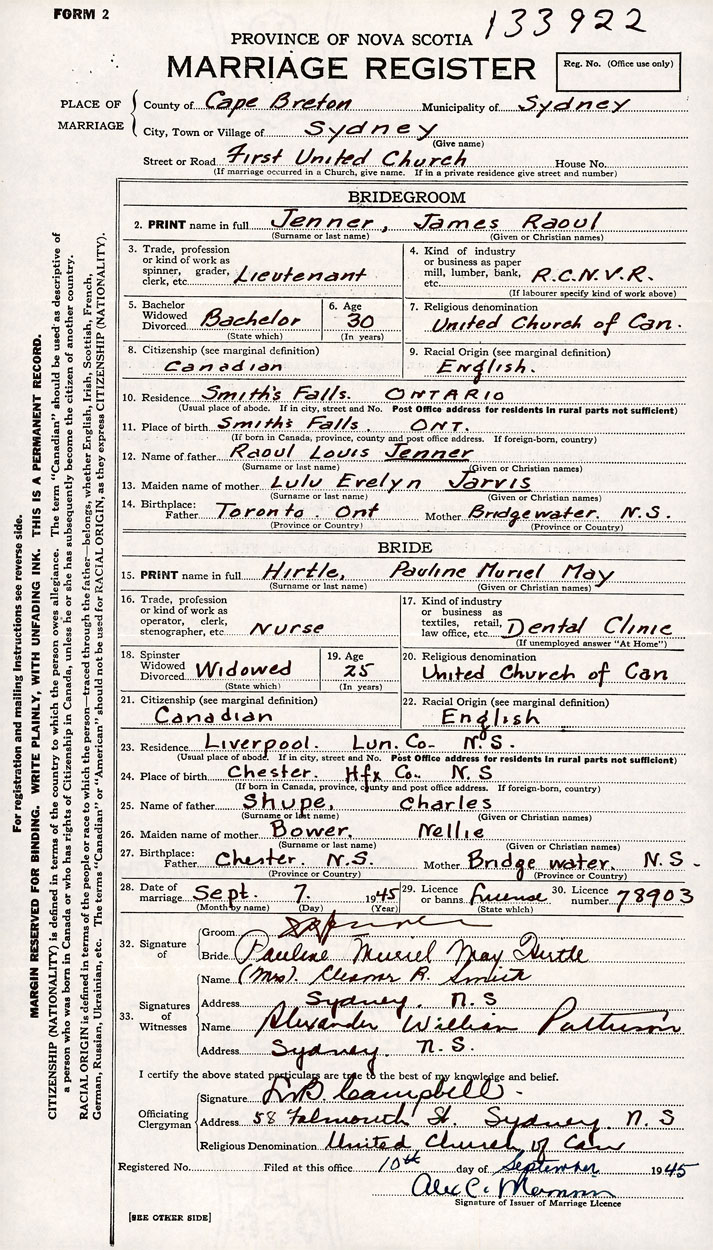 FORM 2
133922
PROVINCE OF NOVA SCOTIA
MARRIAGE REGISTER
Reg. No. (Office use only)
PLACE OF MARRIAGE
County of Cape Breton Municipality of Sydney
City, Town or Village of Sydney
(Give name)
Street or Road First United Church House No.
(If marriage occurred in a Church, give name. If in a private residence give street and number)
BRIDEGROOM
2. PRINT name in full Jenner, James Raoul
(Surname or last name) (Given or Christian names)
3. Trade, profession or kind of work as spinner, grader, clerk, etc. Lieutenant
4. Kind of industry or business as paper mill, lumber, bank, etc. R.C.N.V.R.
(If labourer specify kind of work above)
5. Bachelor Widowed Divorced Bachelor
(State which)
6. Age 30
(In years)
7. Religious denomination
United Church of Can.
8. Citizenship (see marginal definition)
Canadian
9. Racial Origin (see marginal definition)
English.
10. Residence Smith's Falls. ONTARIO
(Usual place of abode. If in city, street and No. Post Office address for residents in rural parts not sufficient)
11. Place of birth Smith's Falls ONT.
(If born in Canada, province, county and post office address. If foreign-born, country)
12. Name of father Raoul Louis Jenner
(Surname or last name) (Given or Christian names)
13. Maiden name of mother Lulu Evelyn Jarvis
(Surname or last name) (Given or Christian names)
14. Birthplace: Father Toronto. Ont Mother Bridgewater. N.S.
(Province or Country) (Province or Country)
BRIDE
15. PRINT name in full Hirtle, Pauline Muriel May
(Surname or last name) (Given or Christian names)
16. Trade, profession or kind of work as operator, clerk, stenographer, etc. Nurse
17. Kind of industry or business as textiles, retail, law office, etc. Dental Clinic
(If unemployed answer "At Home")
18. Spinster Widowed Divorced Widowed
(State which)
19. Age 25
(In years)
20. Religious denomination
United Church of Can
21. Citizenship (see marginal definition)
Canadian
22. Racial Origin (see marginal definition)
English
23. Residence Liverpool. Lun. Co- N.S.
(Usual place of abode. If in city, street and No. Post Office address for residents in rural parts not sufficient)
24. Place of birth Chester. Hfx Co. N.S
(If born in Canada, province, county and post office address. If foreign-born, country)
25. Name of father Shupe, Charles
(Surname or last name) (Given or Christian names)
26. Maiden name of mother Bower, Nellie
(Surname or last name) (Given or Christian names)
27. Birthplace: Father Chester. N.S. Mother Bridge water. N.S-
(Province or Country) (Province or Country)
28. Date of marriage Sept. 7. 1945
(Month by name) (Day) (Year)
29. Licence or banns license
(State which)
30. Licence number 78903
32. Signature of
Groom
Bride Pauline Muriel May Hirtle
33. Signatures of Witnesses
Name (Mrs). Eleanor R. Smith
Address Sydney. N.S
Name Alexander William Patterson
Address Sydney. N.S.
I certify the above stated particulars are true to the best of my knowledge and belief.
Officiating Clergyman
Signature Campbell
Address 58 Falmouth St. Sydney. N.S
Religious Denomination United Church of Can
Registered No. Filed at this office 10th day of September 1945
Alex C.
Signature of Issuer of Marriage Licence
[SEE OTHER SIDE]
For registration and mailing instructions see reverse side.
MARGIN RESERVED FOR BINDING. WRITE PLAINLY, WITH UNFADING INK. THIS IS A PERMANENT RECORD.
CITIZENSHIP (NATIONALITY) is defined in terms of the country to which the person owes allegiance. The term "Canadian" should be used as descriptive of
a person who was born in Canada or who has rights of Citizenship in Canada, unless he or she has subsequently become the citizen of another country.
RACIAL ORIGIN is defined in terms of the people or race to which the person—traced through the father—belongs, whether English, Irish, Scottish, French,
German, Russian, Ukrainian, etc. The terms "Canadian" or "American" should not be used for RACIAL ORIGIN, as they express CITIZENSHIP (NATIONALITY).